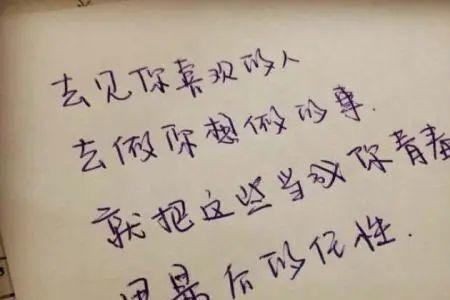 去见你喜欢的人
去做你想做的事.
就把这些当成你青春
里最后的任性.